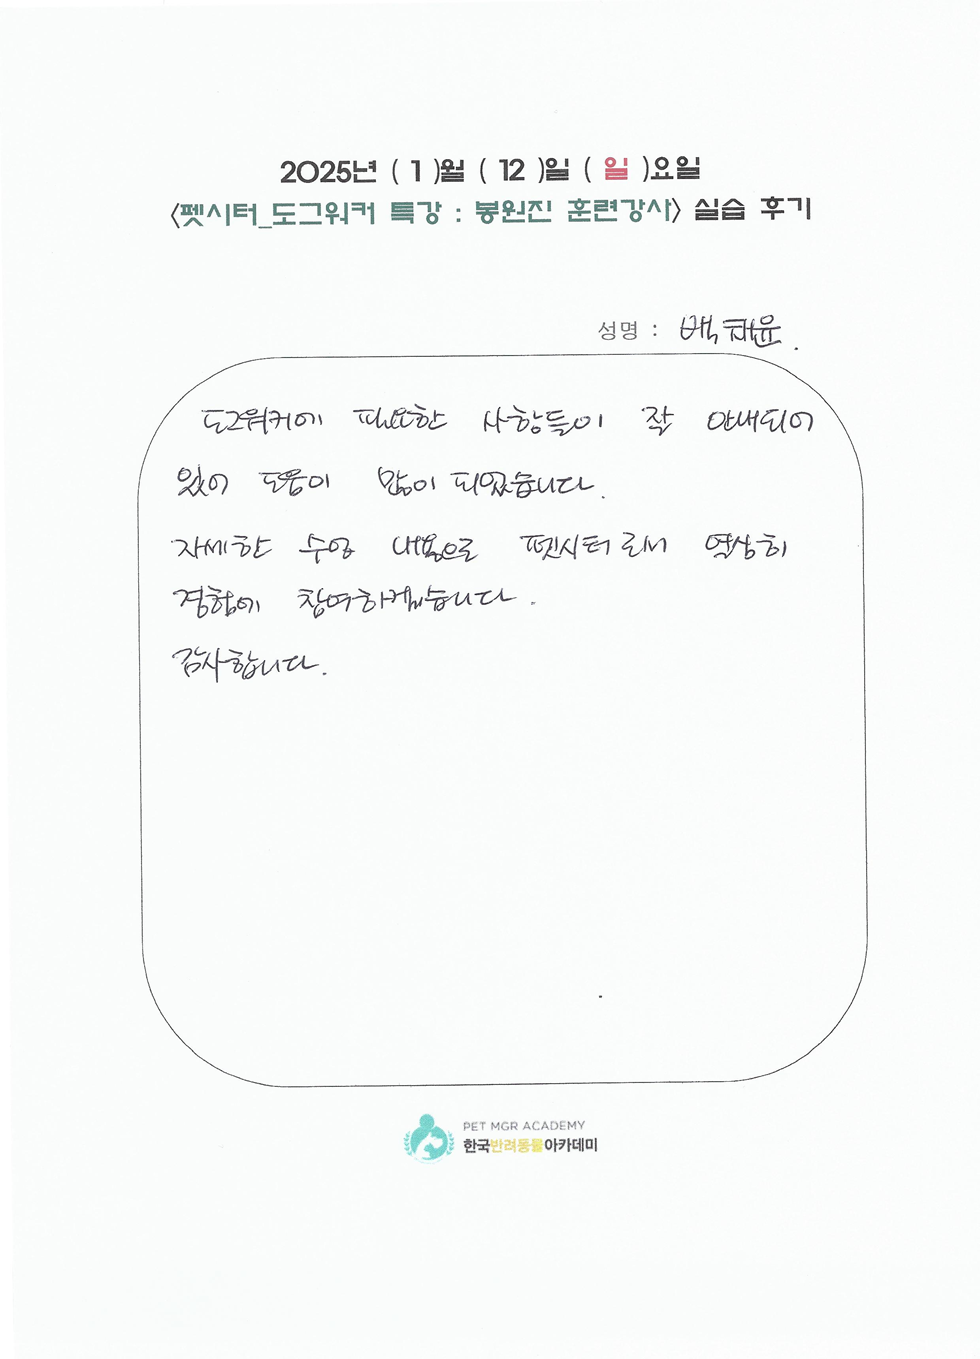 2025년 ( 1 )월 ( 12 )일 ( 일 )요일
<펫시터_도그워커 특강 : 봉원진 훈련강사> 실습 후기
성명 : 백재윤.
도그워커에 필요한 사항들이 잘 안내되어
있어 도움이 많이 되었습니다.
자세한 수업 내용으로 펫시터로서 열심히
경험에 참여하겠습니다.
감사합니다.
PET MGR ACADEMY
한국반려동물아카데미